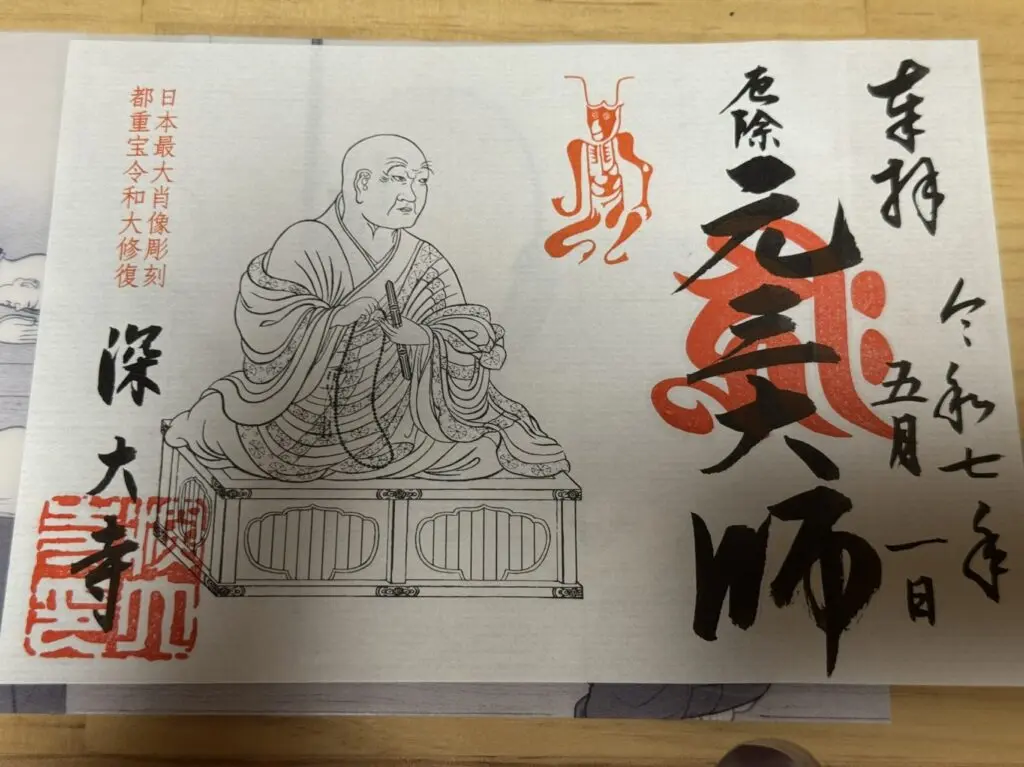 奉拝
令和七年
五月一日
厄除
元三大師
日本最大肖像彫刻
都重宝令和大修復
深大寺